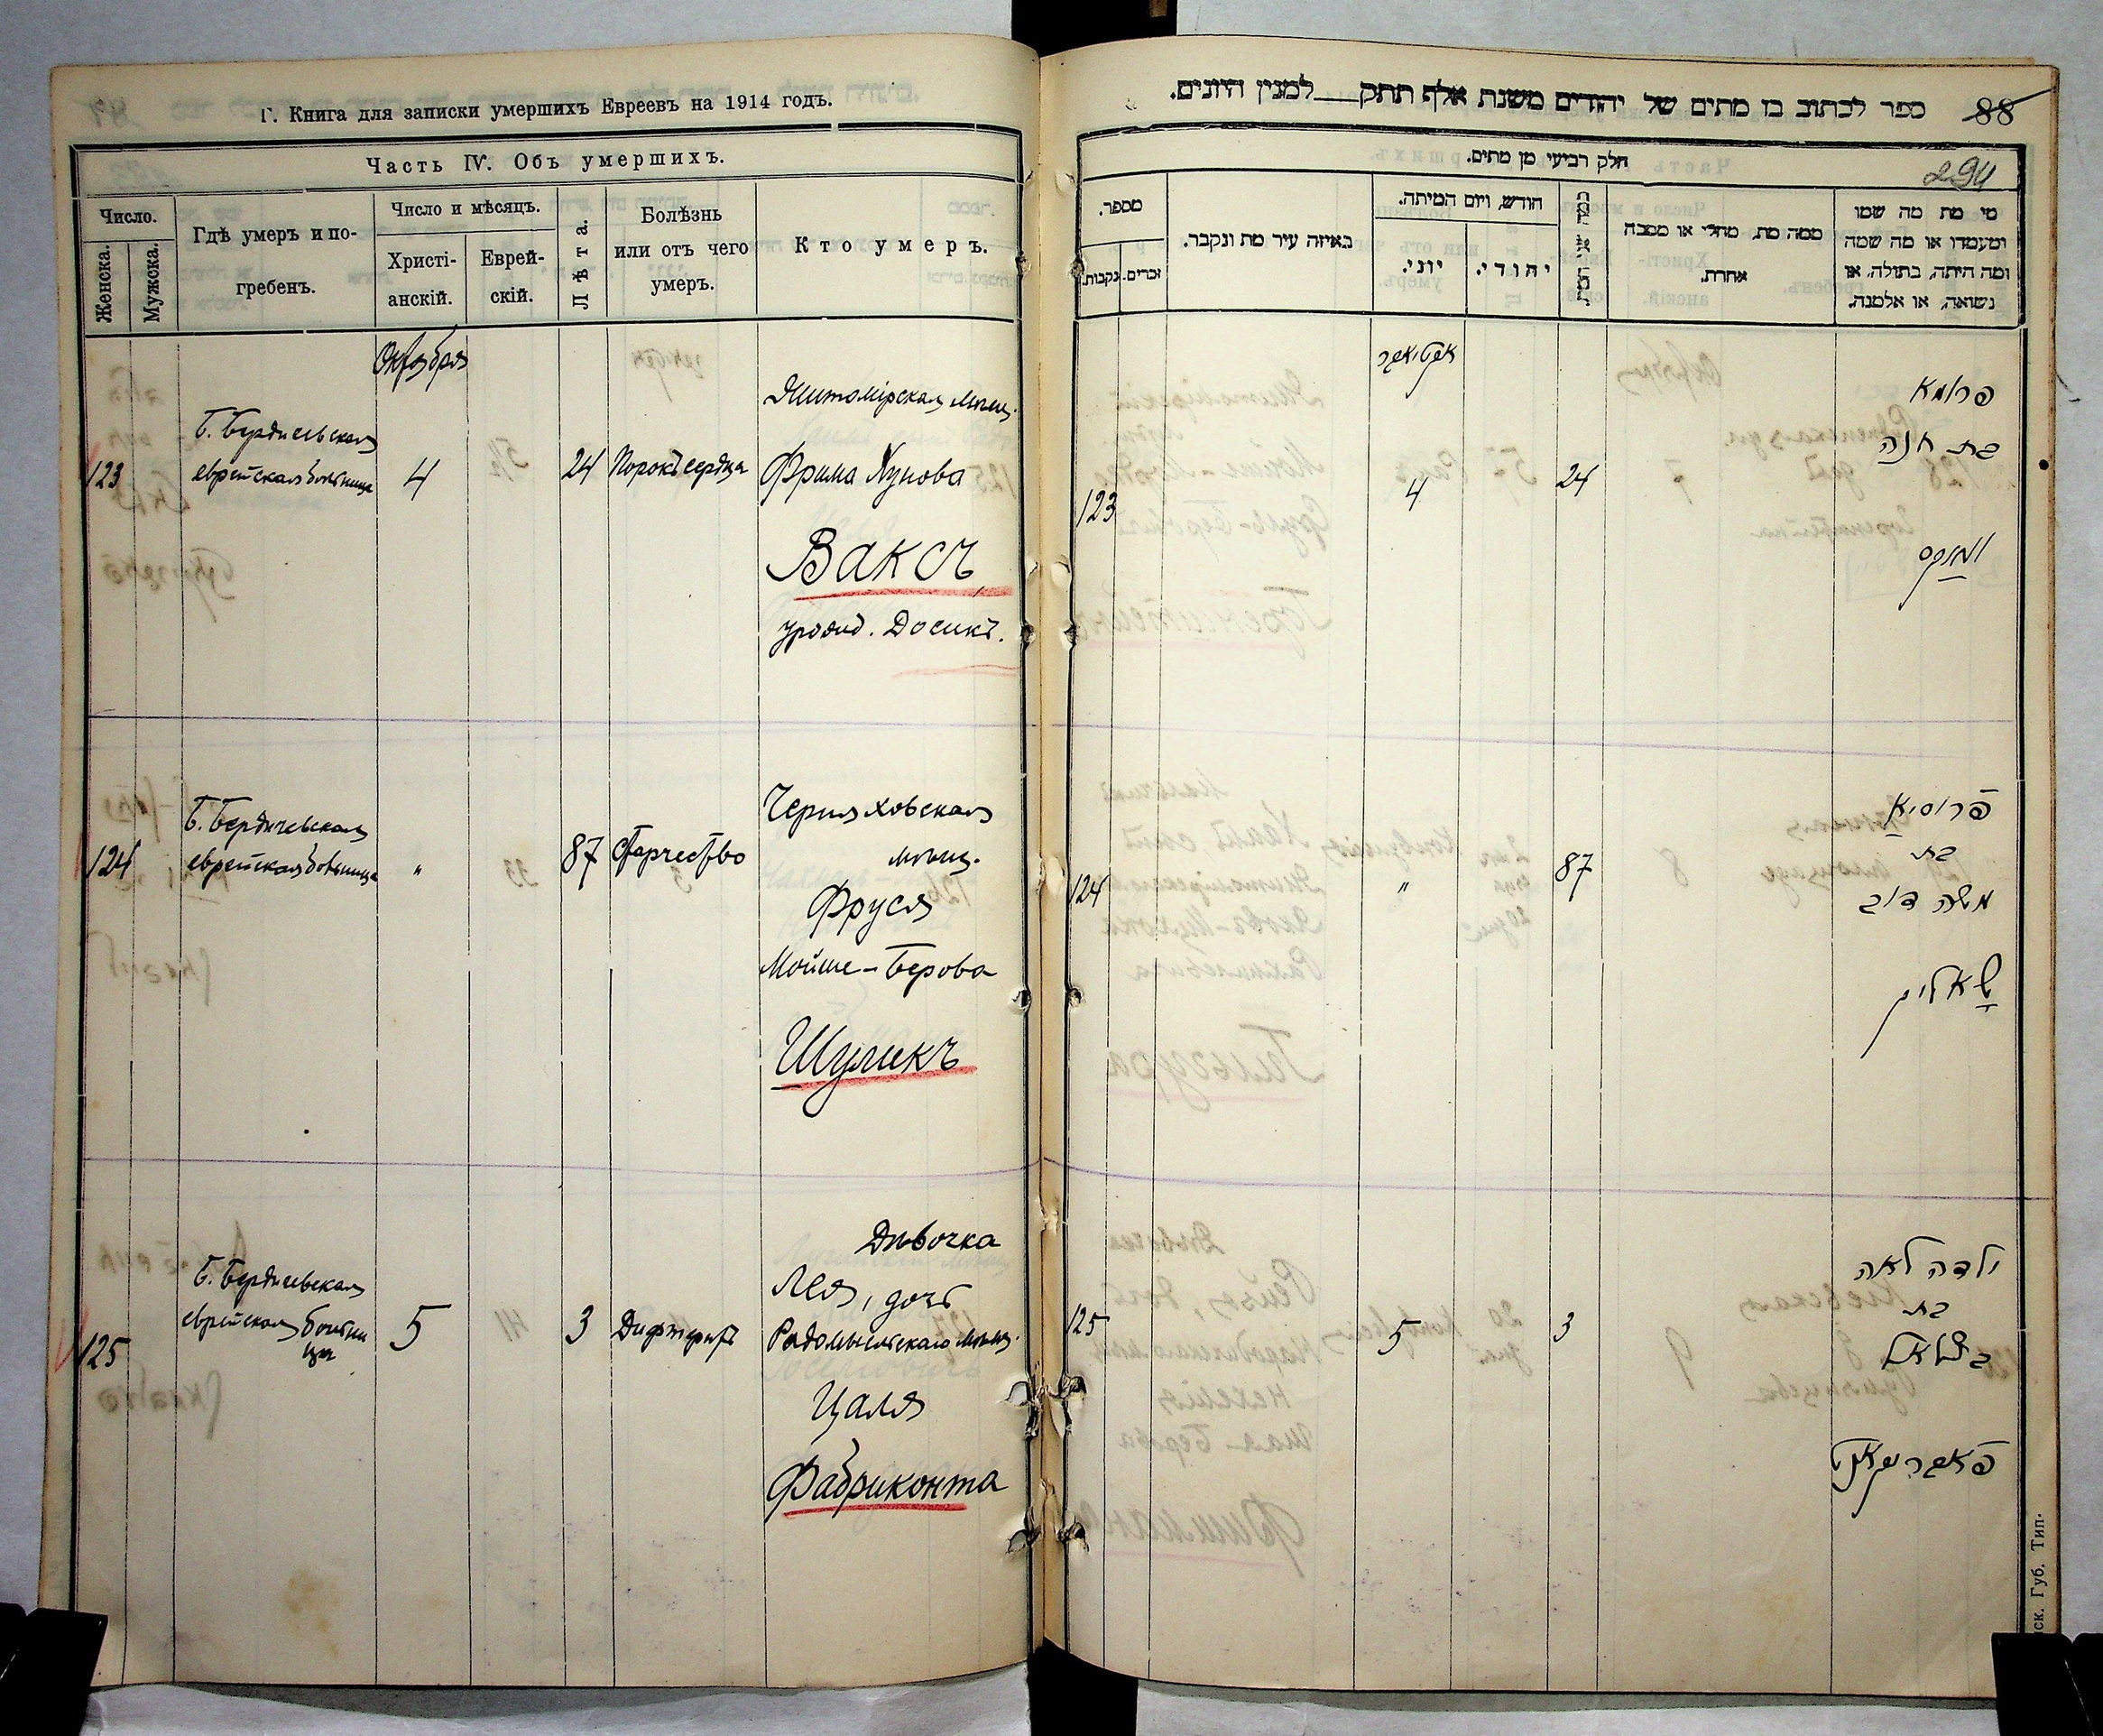 Г. Книга для записки умершихъ Евреевъ на 1914 годъ.
Часть IV. Объ умершихъ.
Число.
Женска.
Мужска.
Гдѣ умеръ и по-
гребенъ.
Число и мѣсяцъ.
Христі-
анскій.
Еврей-
скій.
Лѣта.
Болѣзнь
или отъ чего
умеръ.
Кто умеръ.
Октября
123
Б. Бердичевская
еврейская больница
4
24
Порокъ сердца
Житомірская мѣщ.
Фрима Хунова
Ваксъ
урожд. Досикъ.
124
Б. Бердичевская
еврейская больница
"
87
Старчество
Черняховская
мѣщ.
Фруся
Мойше-Берова
Шуликъ
125
Б. Бердичевская
еврейская больни
ца
5
3
Дифтеритъ
Дѣвочка
Лея, дочь
Радомысльскаго мѣщ.
Цаля
Фабриконта
ספר לכתוב בו מתים של יהודים משנת אלף תתק למנין היונים.
88
חלק רביעי מן מתים.
294
מספר.
נקבות.
זכרים.
באיזה עיר מת ונקבר.
חודש, ויום המיתה.
יוני.
יהודי.
ממה מת, מחלי או מסבה
אחרת.
מי מת מה שמו
ומעמדו או מה שמה
ומה היתה, בתולה, או
נשואה, או אלמנה.
123
4
24
פרומא
בת חנה
וואקס
124
"
87
פרוסיא
בת
משה דוב
125
5
3
ילדה לאה
בת
בצלאל
פאבריקאנט
ск. Губ. Тип.